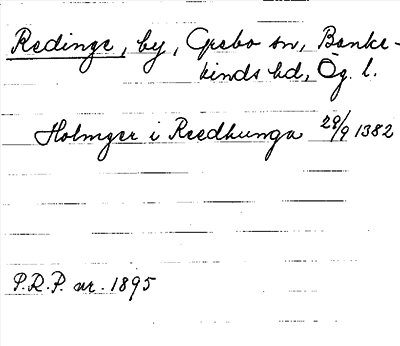 Redinge, by, Grebo sn, Banke-
kinds hd, Ög. l.
Holmger i Reedhunga 28/9 1382
P.R.P. nr. 1895